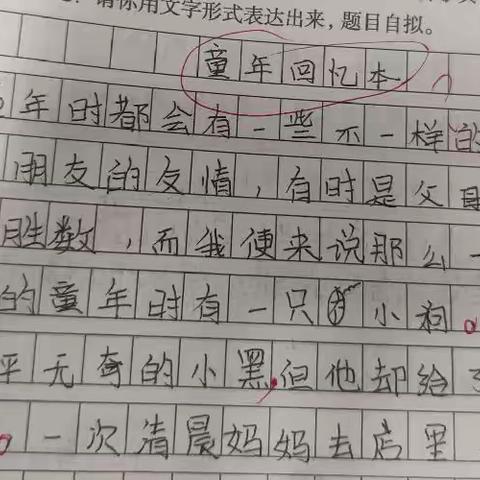 请你用文字形式表达出来，题目自拟。
童年回忆本
年时都会有一些不一样的
朋友的友情，有时是父母
胜数，而我便来说那么一
的童年时有一只小狗。
平无奇的小黑，但他却给
。一次清晨妈妈去店里